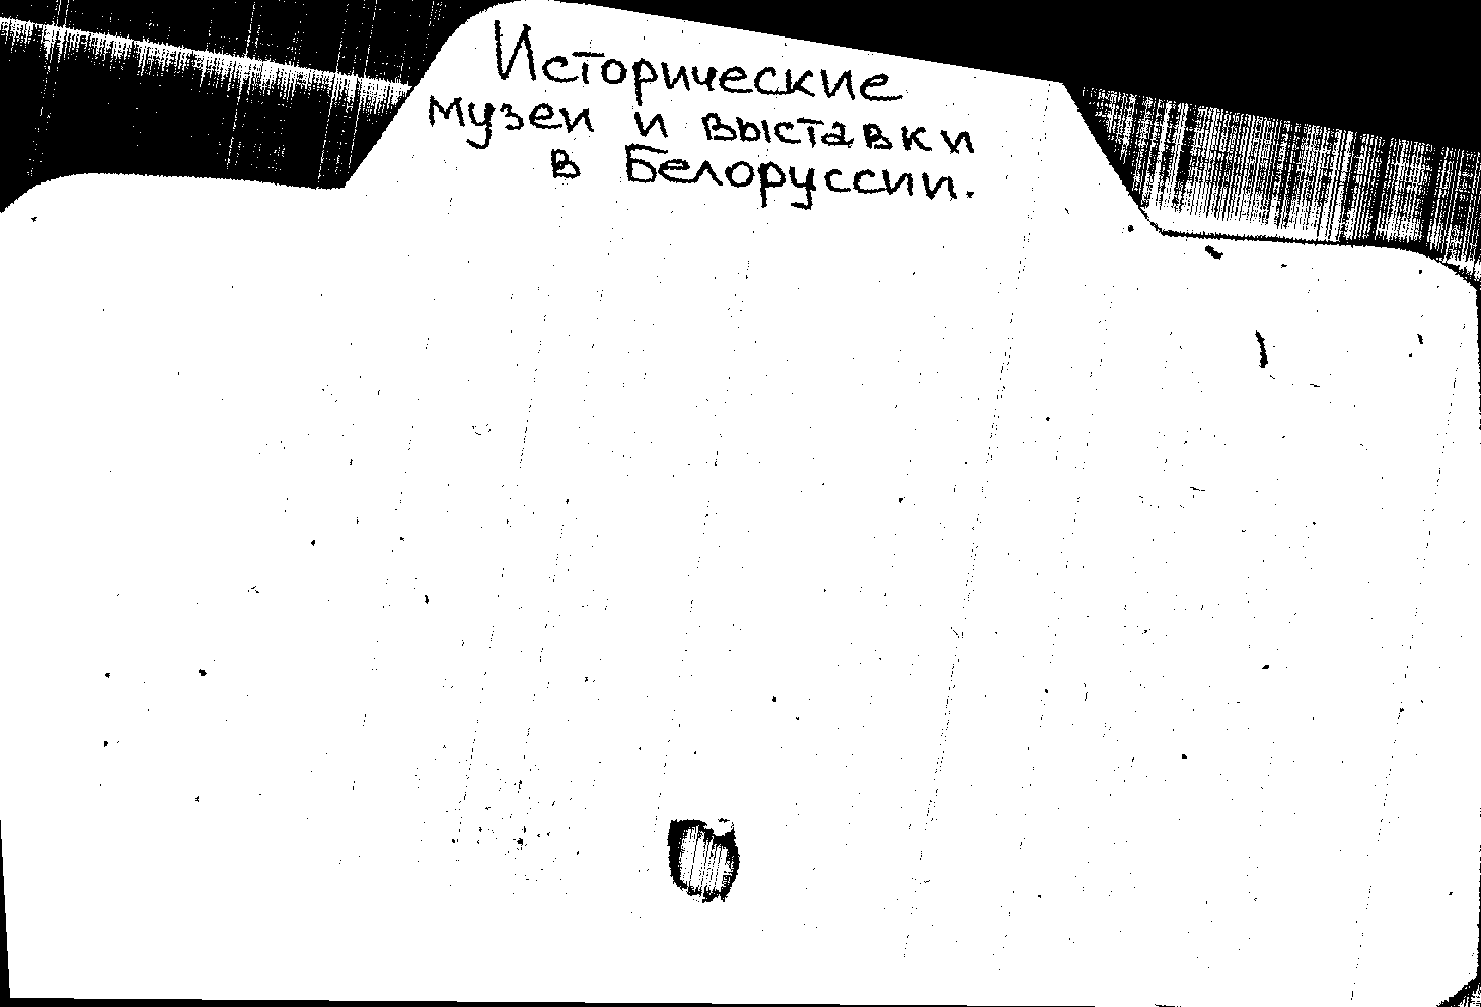 Исторические
музеи и выставки
в Белоруссии.